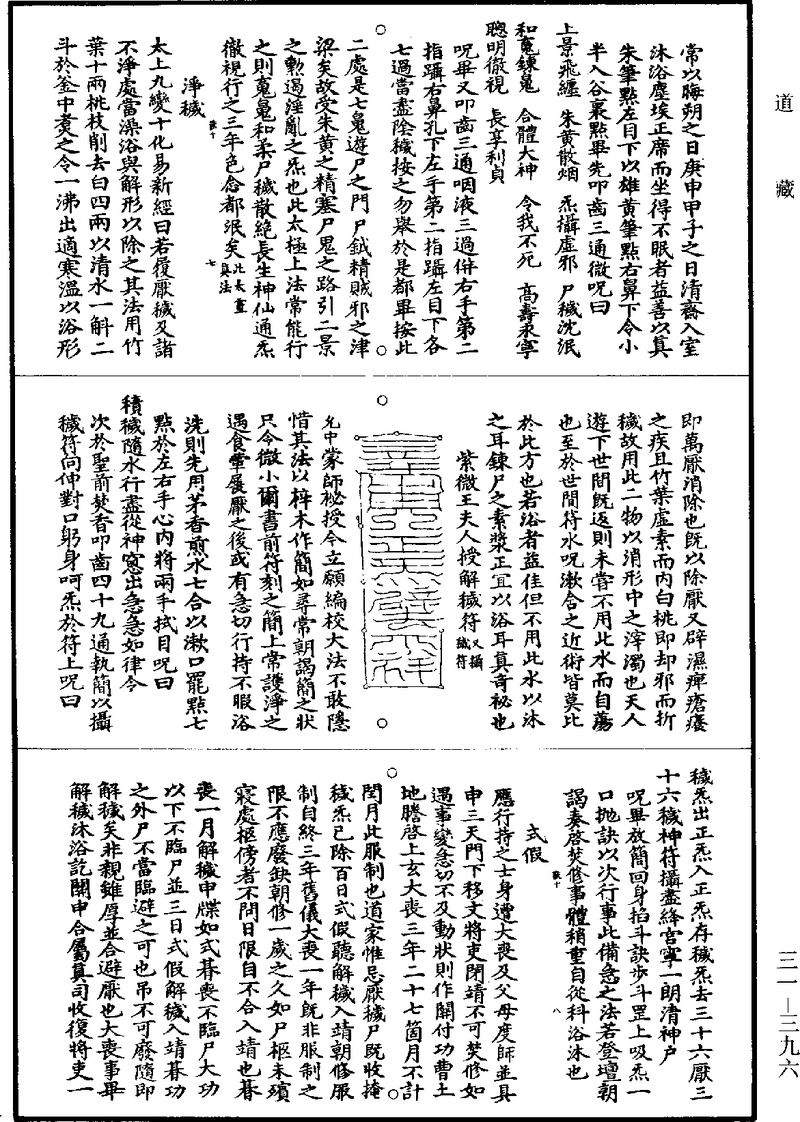 道藏
常以晦朔之日庚申甲子之日清齋入室
沐浴塵埃正席而坐得不眠者益善以真
朱筆點左目下以雄黃筆點右鼻下令小
半入谷裏點畢先叩齒三通微呪曰
上景飛纏　朱黃散烟　炁攝虛邪　尸穢沈泯
和魂鍊魄　合體大神　令我不死　高壽永寧
聰明徹視　長享利貞
呪畢又叩齒三通咽液三過併右手第二
指躡右鼻孔下左手第二指躡左目下各
七過當盡陰穢按之勿舉於是都畢按此
二處是七魄遊尸之門尸鉞精賊邪之津
梁矣故受朱黃之精塞尸鬼之路引二景
之勳遏淫亂之炁也此太極上法常能行
之則魂魄和柔尸穢散絕長生神仙通炁
徹視行之三年色念都泯矣此太玄真法
七
淨穢
太上九變十化易新經曰若履厭穢及諸
不淨處當澡浴與解形以除之其法用竹
葉十兩桃枝削去白四兩以清水一斛二
斗於釜中煮之令一沸出適寒溫以浴形
即萬厭消除也既以除厭又辟濕痺瘡癢
之疾且竹葉虛素而內白桃即却邪而折
穢故用此二物以消形中之滓濁也天人
遊下世間既返則未嘗不用此水而自蕩
也至於世間符水呪漱舍之近術皆莫比
於此方也若浴者益佳但不用此水以沐
之耳鍊尸之素漿正宜以浴耳真奇祕也
紫微王夫人授解穢符又攝穢符
允中蒙師祕授今立願編校大法不敢隱
惜其法以梓木作簡如尋常朝謁簡之狀
只令微小爾書前符刻之簡上常護淨之
遇食葷履厭之後或有急切行持不暇浴
洗則先用茅香煎水七合以漱口罷點七
點於左右手心內將兩手拭目呪曰
積穢隨水行盡從神窻出急急如律令
次於聖前焚香叩齒四十九通執簡以攝
穢符向仲對口躬身呵炁於符上呪曰
穢炁出正炁入正炁存穢炁去三十六厭三
十六穢神符攝盡絳宮寧一朗清神戶
呪畢放簡回身掐斗訣步斗罡上吸炁一
口拋訣以次行事此備急之法若登壇朝
謁奏啓焚修事體稍重自從科浴沐也
八
式假
應行持之士身遭大喪及父母度師並具
申三天門下移文將吏閉靖不可焚修如
遇事變急切不及動狀則作關付功曹土
地謄啓上玄大喪三年二十七箇月不計
閏月此服制也道家惟忌厭穢尸既收掩
穢炁已除百日式假聽解穢入靖朝修服
制自終三年舊儀大喪一年既非服制之
限不應廢缺朝修一歲之久如尸柩未殯
寢處柩傍者不問日限自不合入靖也朞
喪一月解穢申牒如式朞喪不臨尸大功
以下不臨尸並三日式假解穢入靖朞功
之外尸不當臨避之可也吊不可廢隨即
解穢矣非親雖厚並合避厭也大喪事畢
解穢沐浴訖關申合屬真司收復將吏一
三一—三九六